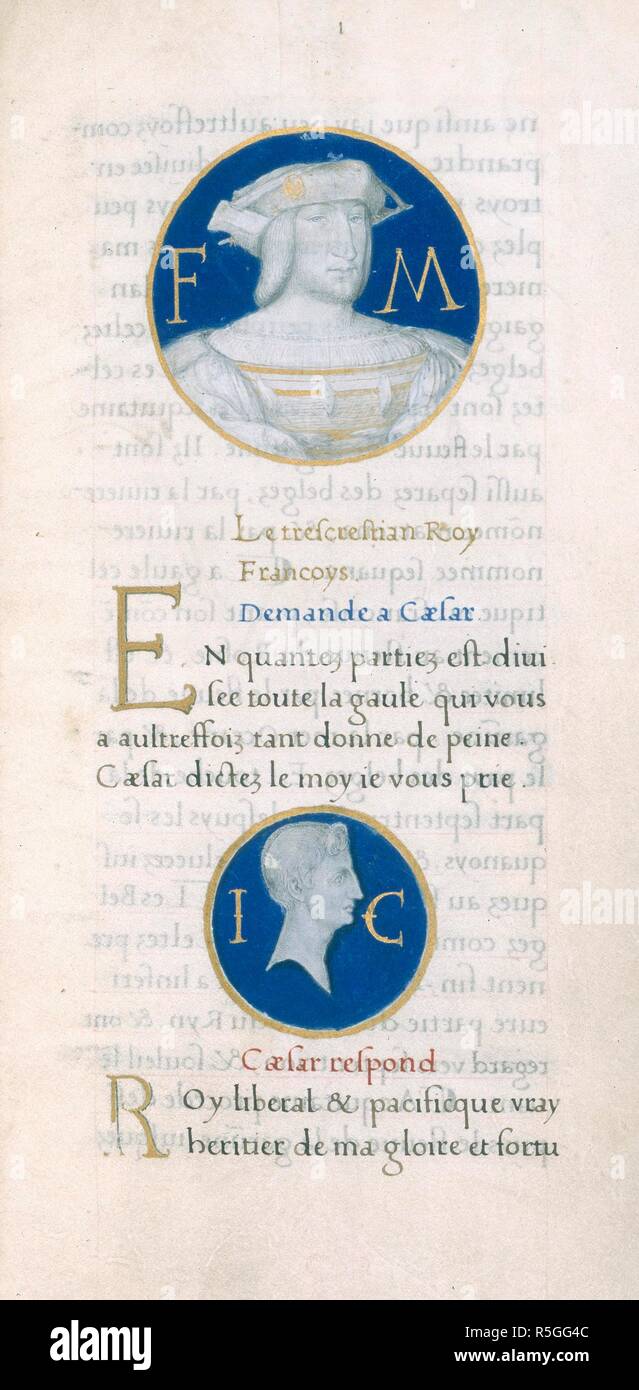 1
F M
Le trescrestian Roy
Francoys.
Demande a Cæsar.
EN quantez partiez est diui
see toute la gaule qui vous
a aultreffoiz tant donne de peine.
Cæsar dictez le moy ie vous prie.
I C
Cæsar respond
ROy liberal & pacificque vray
heritier de ma gloire et fortu
alamy stock photo
a alamy
Image ID: R5GG4C
www.alamy.com